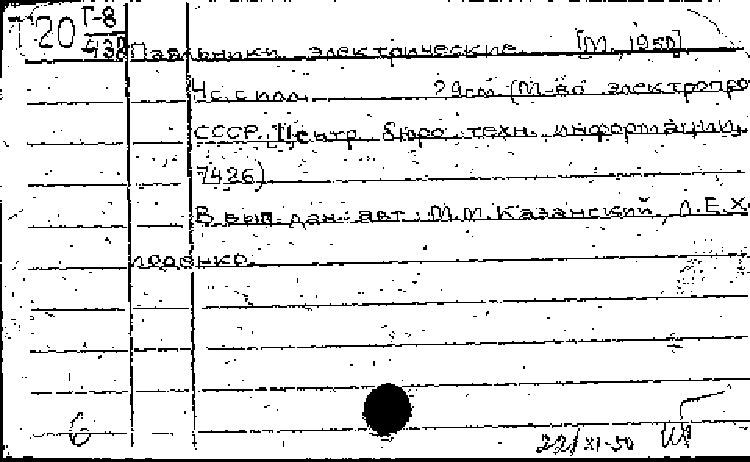 Т20 Г-8
438
Паяльники электрические [М., 1950]
4 с. с илл. 29 см (М-во электропро
СССР. Центр. бюро техн. информации,
7426)
В вып. дан. авт.: М.М. Казанский, Л.Е.Х
лоденко.
6
22/XI-50